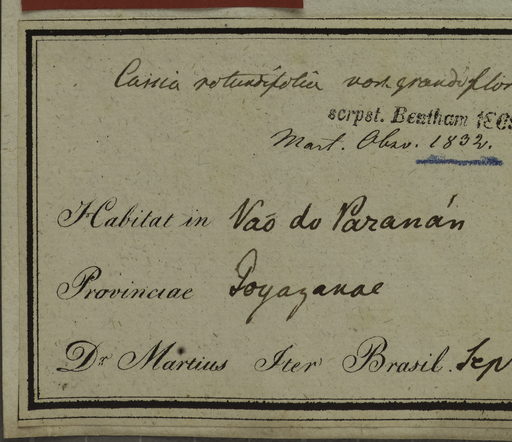 Cassia rotundifolia var. grandiflor
scrpst. Bentham 186
Mart. Obsv. 1832.
Habitat in Vaõ do Paranán
Provinciae Goyazanae
Dr. Martius Iter Brasil. Sep